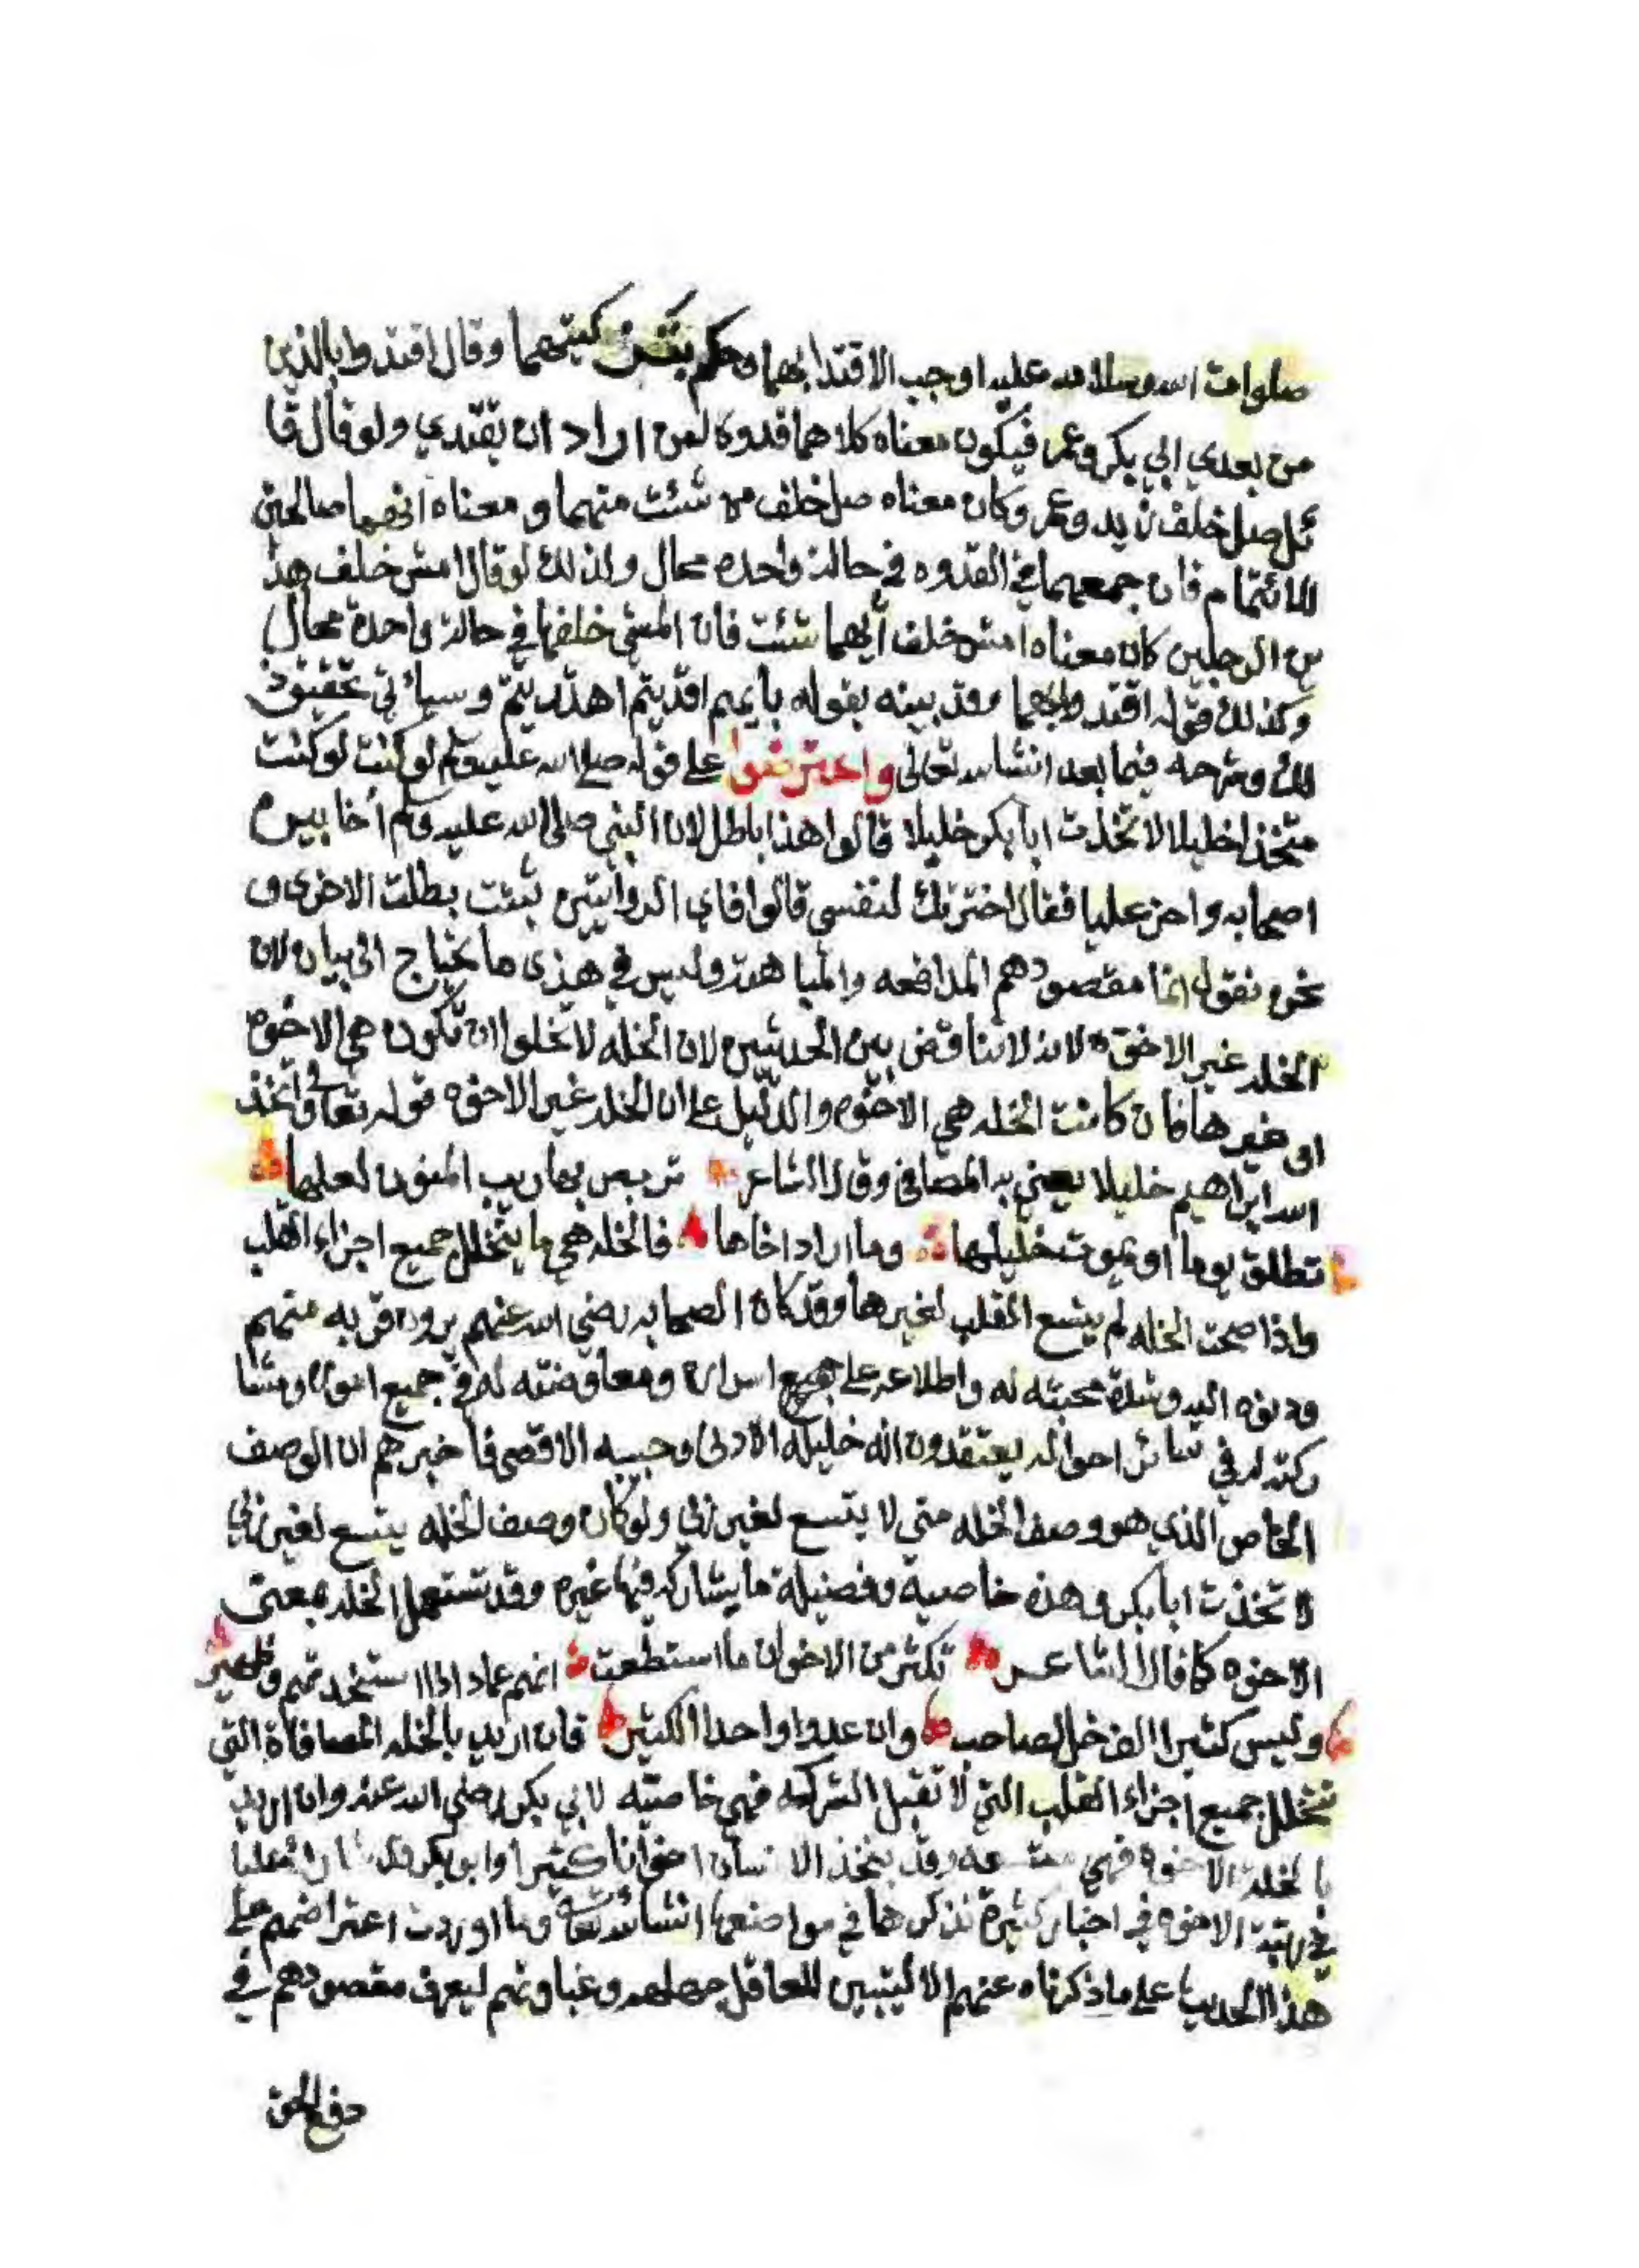 صلوات الله وسلامه عليه اوجب الاقتدا بهما وحكم بتزكيتهما وقال اقتدوا بالذين
من بعدي ابي بكر وعمر فيكون معناه كلاهما قدوة لمن اراد ان يقتدي ولو قال قا
ئل صل خلف زيد وعمر وكان معناه صل خلف من شئت منهما ومعناه انهما صالحين
للائتمام فان جمعهما في القدوه في حالة واحده محال ولذلك لوقال امش خلف هذ
ين الرجلين كان معناه امش خلف أيهما شئت فان المشي خلفهما في حالة واحدة محال
وكذلك قوله اقتدوا بهما وقد بينه بقوله بأيهم اقتديتم اهتديتم وسيأتي تحقيق ذ
لك وشرحه فيما بعد انشا الله تعالى واعترضوا على قوله صلى الله عليه وسلم لو كنت لو كنت
متخذا خليلا لاتخذت ابا بكر خليلا قالوا هذا باطل لان النبي صلى الله عليه وسلم أخا بين
اصحابه واخر عليا فقال اخترتك لنفسي قالوا فاي الروايتين ثبتت بطلت الاخرى و
نحن نقول انما مقصودهم المدافعه والمباهتة وليس في هذى ما يحتاج الى بيان لان
الخلة غير الاخوة لانه لا تناقض بين الحديثين لان الخله لا تخلوا ان تكون هي الاخوه
او غيرها فان كانت الخله هي الاخوه والدليل على ان الخلة غير الاخوه قوله تعالى واتخذ
الله ابراهيم خليلا يعني به المصافي وقال الشاعر تربص بها ريب المنون لعلها
تطلق يوما او يموت خليلها وما اراد اخاها فالخلة هي ما يتخلل جميع اجزاء القلب
واذا صحت الخله لم يتسع القلب لغيرها وقد كان الصحابه رضي الله عنهم يرون قربه منهم
ودنوه اليه وشدة محبته له واطلاعه على جميع اسراره ومعاوضته له في جميع اموره ومشا
ركته له في سائر احواله يعتقدون انه خليله الادنى وحبيبه الاقصى فاخبرهم ان الوصف
الخاص الذي هو وصف الخله مني لا يتسع لغير ربي ولو كان وصف الخله يتسع لغير ربي
لاتخذت ابا بكر وهذه خاصية وفضيلة ما يشاركه فيها غيره وقد تستعمل الخلة بمعنى
الاخوه كما قال الشاعر تكثر من الاخوان ما استطعت انهم عماد اذا استنجدتهم وظهير
وليس كثيرا الف خل لصاحب وان عدوا واحدا لكثير فان اريد بالخله المصافاة التي
تتخلل جميع اجزاء القلب التي لا تقبل الشركه فهي خاصيته لابي بكر رضي الله عنه وان اريد
بالخلة الاخوة فهي متسعه وقد يتخذ الانسان اخوانا كثيرا وابو بكر عليا
في رتبة الاخوه في اخبار كثيرة نذكرها في مواضعها انشا الله تعالى وما اوردت اعتراضهم على
هذا الحديث على ما ذكرناه عنهم الا ليتبين للعاقل جهلهم وغباوتهم ليعرف مقصودهم في
دفع الحق